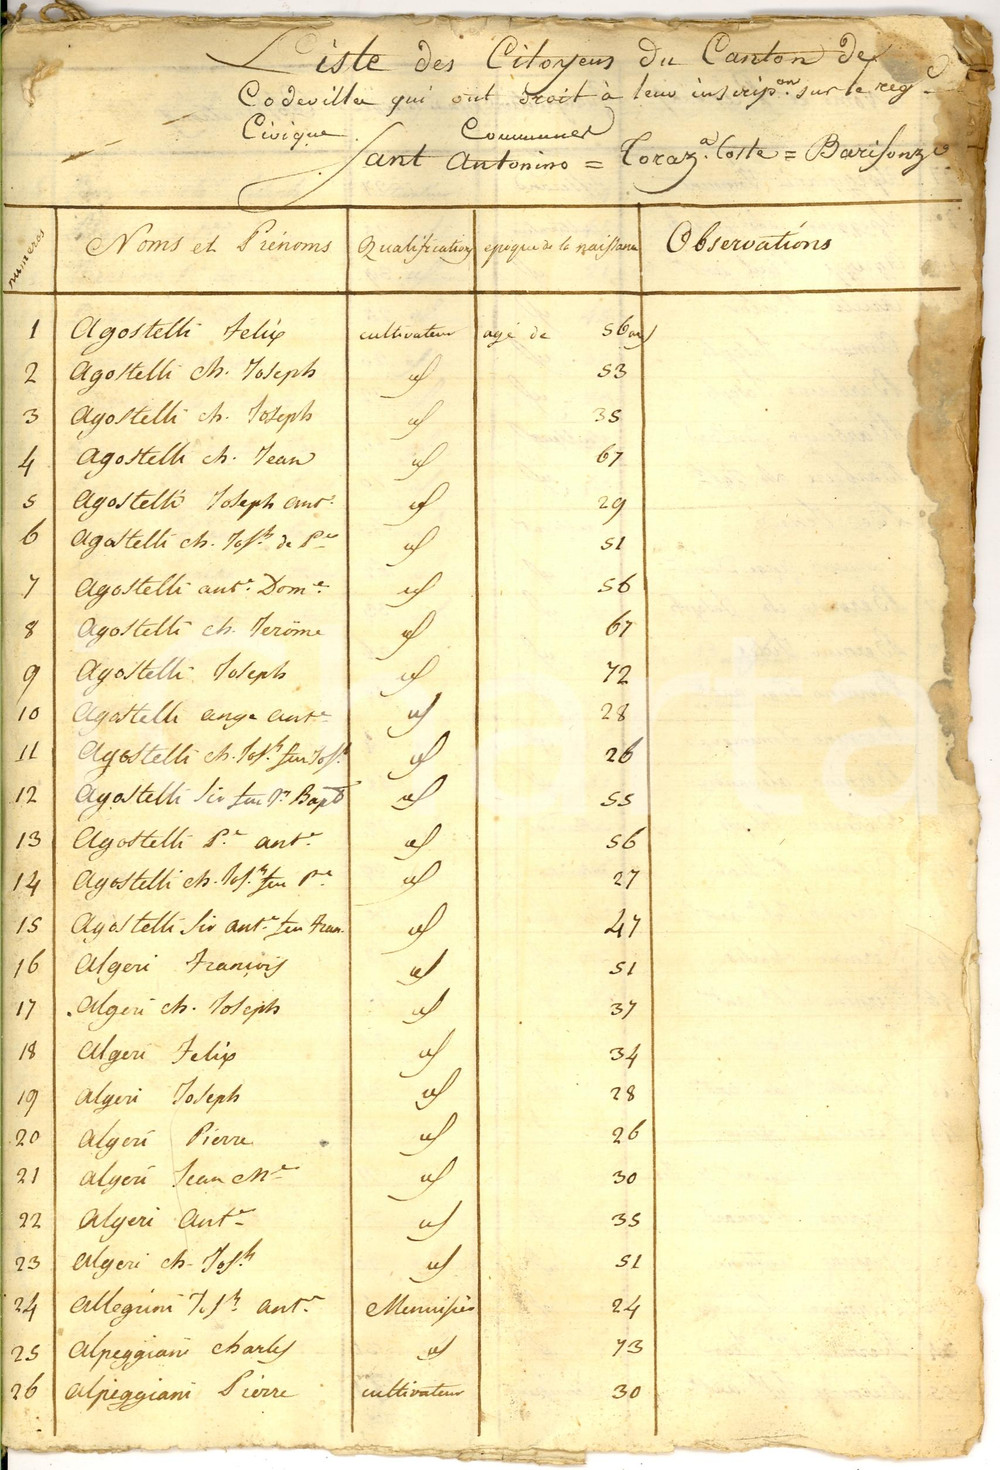 Liste des Citoyens du Canton de
Codevilla qui ont droit à leur inscrip.on sur le reg
Civique Communes
Sant Antonino = Toraz.a Coste = Barisonzo
numeros Noms et Prénoms Qualification epoque de la naissance Observations
1 Agostelli Felix cultivateur agé de 56 ans
2 Agostelli ch. Joseph id 53
3 Agostelli ch. Joseph id 35
4 Agostelli ch. Jean id 67
5 Agostelli Joseph ant.e id 29
6 Agostelli ch. Jos.h de P.re id 51
7 Agostelli ant.e Dom.e id 56
8 Agostelli ch. Jerôme id 67
9 Agostelli Joseph id 72
10 Agostelli ange ant.e id 28
11 Agostelli ch. Jos.h feu Jos.h id 26
12 Agostelli feu Bapt id 55
13 Agostelli P.e ant.e id 56
14 Agostelli ch. Jos.h feu P.re id 27
15 Agostelli ant.e feu fran. id 47
16 Algeri François id 51
17 Algeri ch. Joseph id 37
18 Algeri Felix id 34
19 algeri Joseph id 28
20 algeri Pierre id 26
21 algeri Jean M.e id 30
22 algeri Ant.e id 35
23 algeri ch. Jos.h id 51
24 allegrini Jos.h ant.e Menuisier 24
25 alpeggiani charles id 73
26 alpeggiani Pierre cultivateur 30